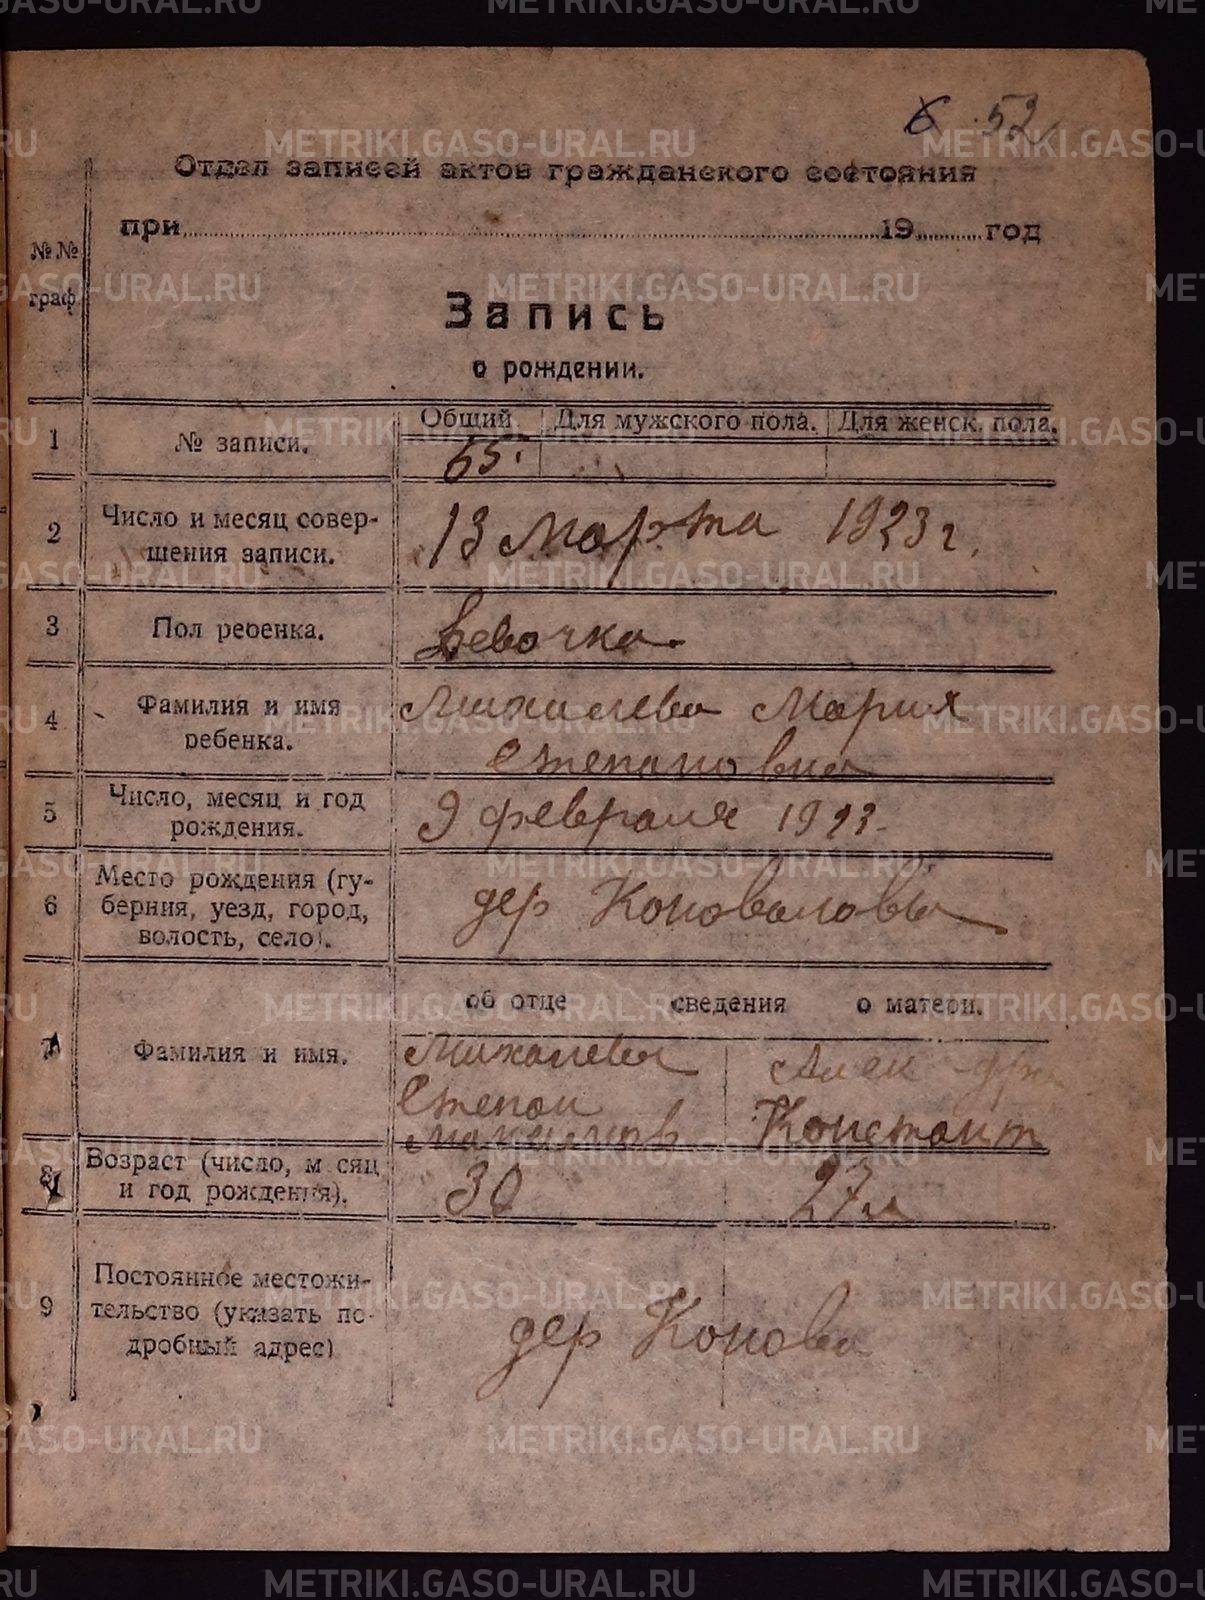 52
Отдел записей актов гражданского состояния
при 19 год
№№ граф.
Запись
о рождении.
Общий. Для мужского пола. Для женск. пола.
1 № записи. 65.
2 Число и месяц совер-
шения записи. 13 Марта 1923 г.
3 Пол ребенка. Девочка.
4 Фамилия и имя Михалева Мария
ребенка. Степановна
5 Число, месяц и год
рождения. 9 февраля 1923.
6 Место рождения (гу-
берния, уезд, город, дер Коновалова
волость, село).
об отце сведения о матери.
7 Фамилия и имя. Михалева Алек
Степан Констант
8 Возраст (число, м сяц
и год рождения). 30 27 л
9 Постоянное местожи-
тельство (указать по-
дробный адрес) дер Конова
METRIKI.GASO-URAL.RU